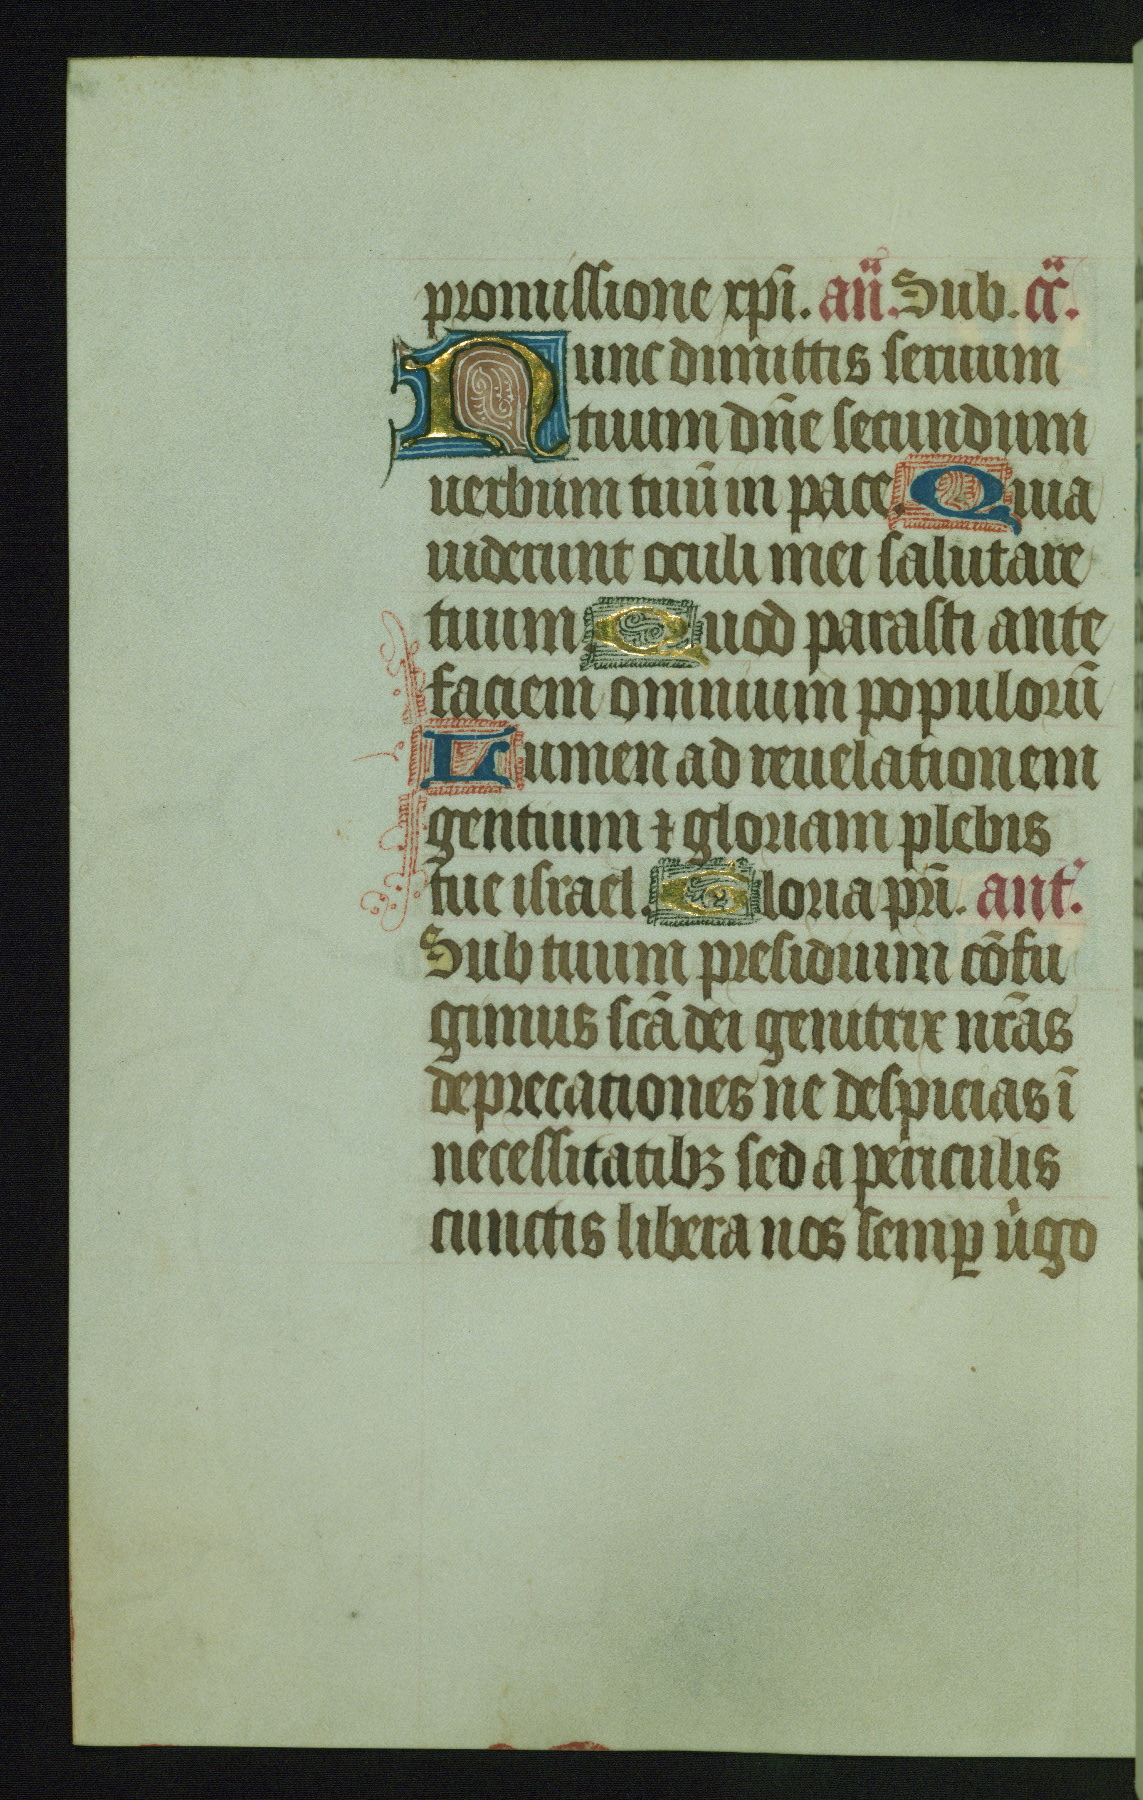 promissione xpi. an̄. Sub. c̄c̄.
Nunc dimittis seruum
tuum dn̄e secundum
uerbum tuū in pace. Quia
uiderunt oculi mei salutare
tuum Quod parasti ante
faciem omnium populorū
Lumen ad reuelationem
gentium ⁊ gloriam plebis
tue israel. Gloria pr̄i. ant̄.
Sub tuum presidium cōfu
gimus scā dei genitrix nr̄as
deprecationes ne despicias ī
necessitatibꝫ sed a periculis
cunctis libera nos semꝑ uigo